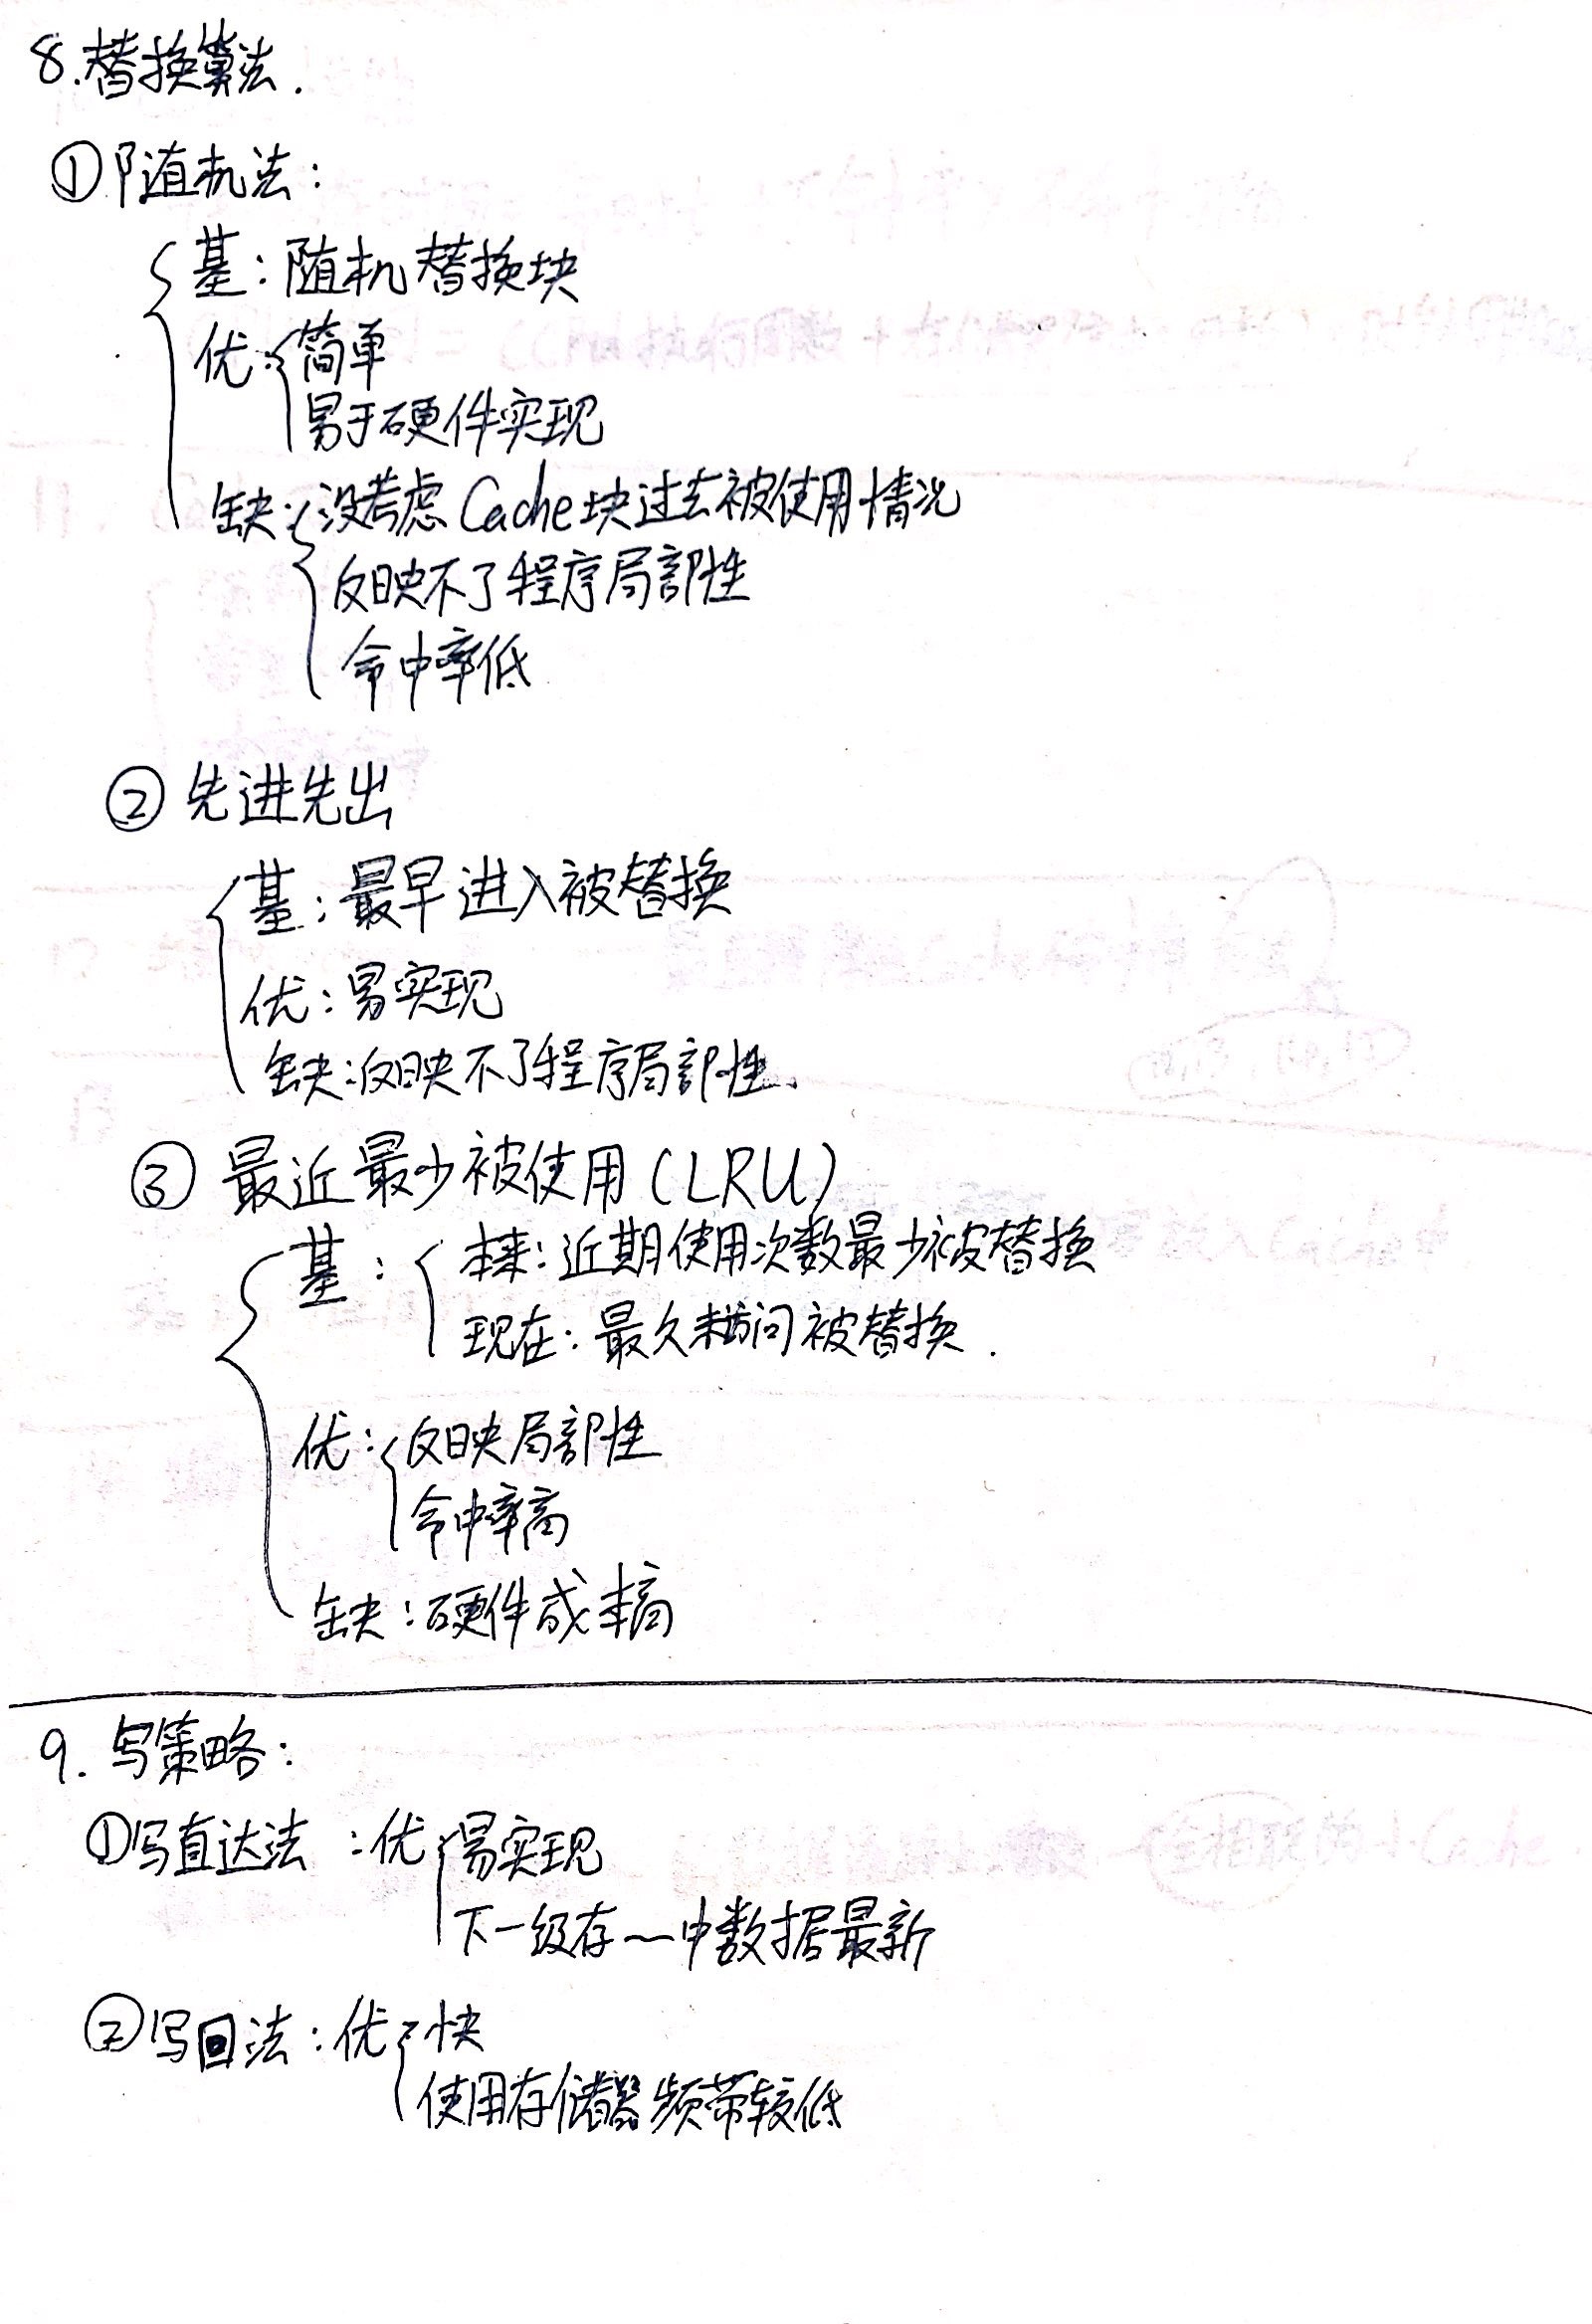 8.替换算法.
①随机法:
基:随机替换块
优:简单
易于硬件实现
缺:没考虑Cache块过去被使用情况
反映不了程序局部性
命中率低
②先进先出
基:最早进入被替换
优:易实现
缺:反映不了程序局部性.
③最近最少被使用(LRU)
基:本来:近期使用次数最少被替换
现在:最久未访问被替换.
优:反映局部性
命中率高
缺:硬件成本高
9.写策略:
①写直达法:优 易实现
下一级存~中数据最新
②写回法:优 快
使用存储器频带较低